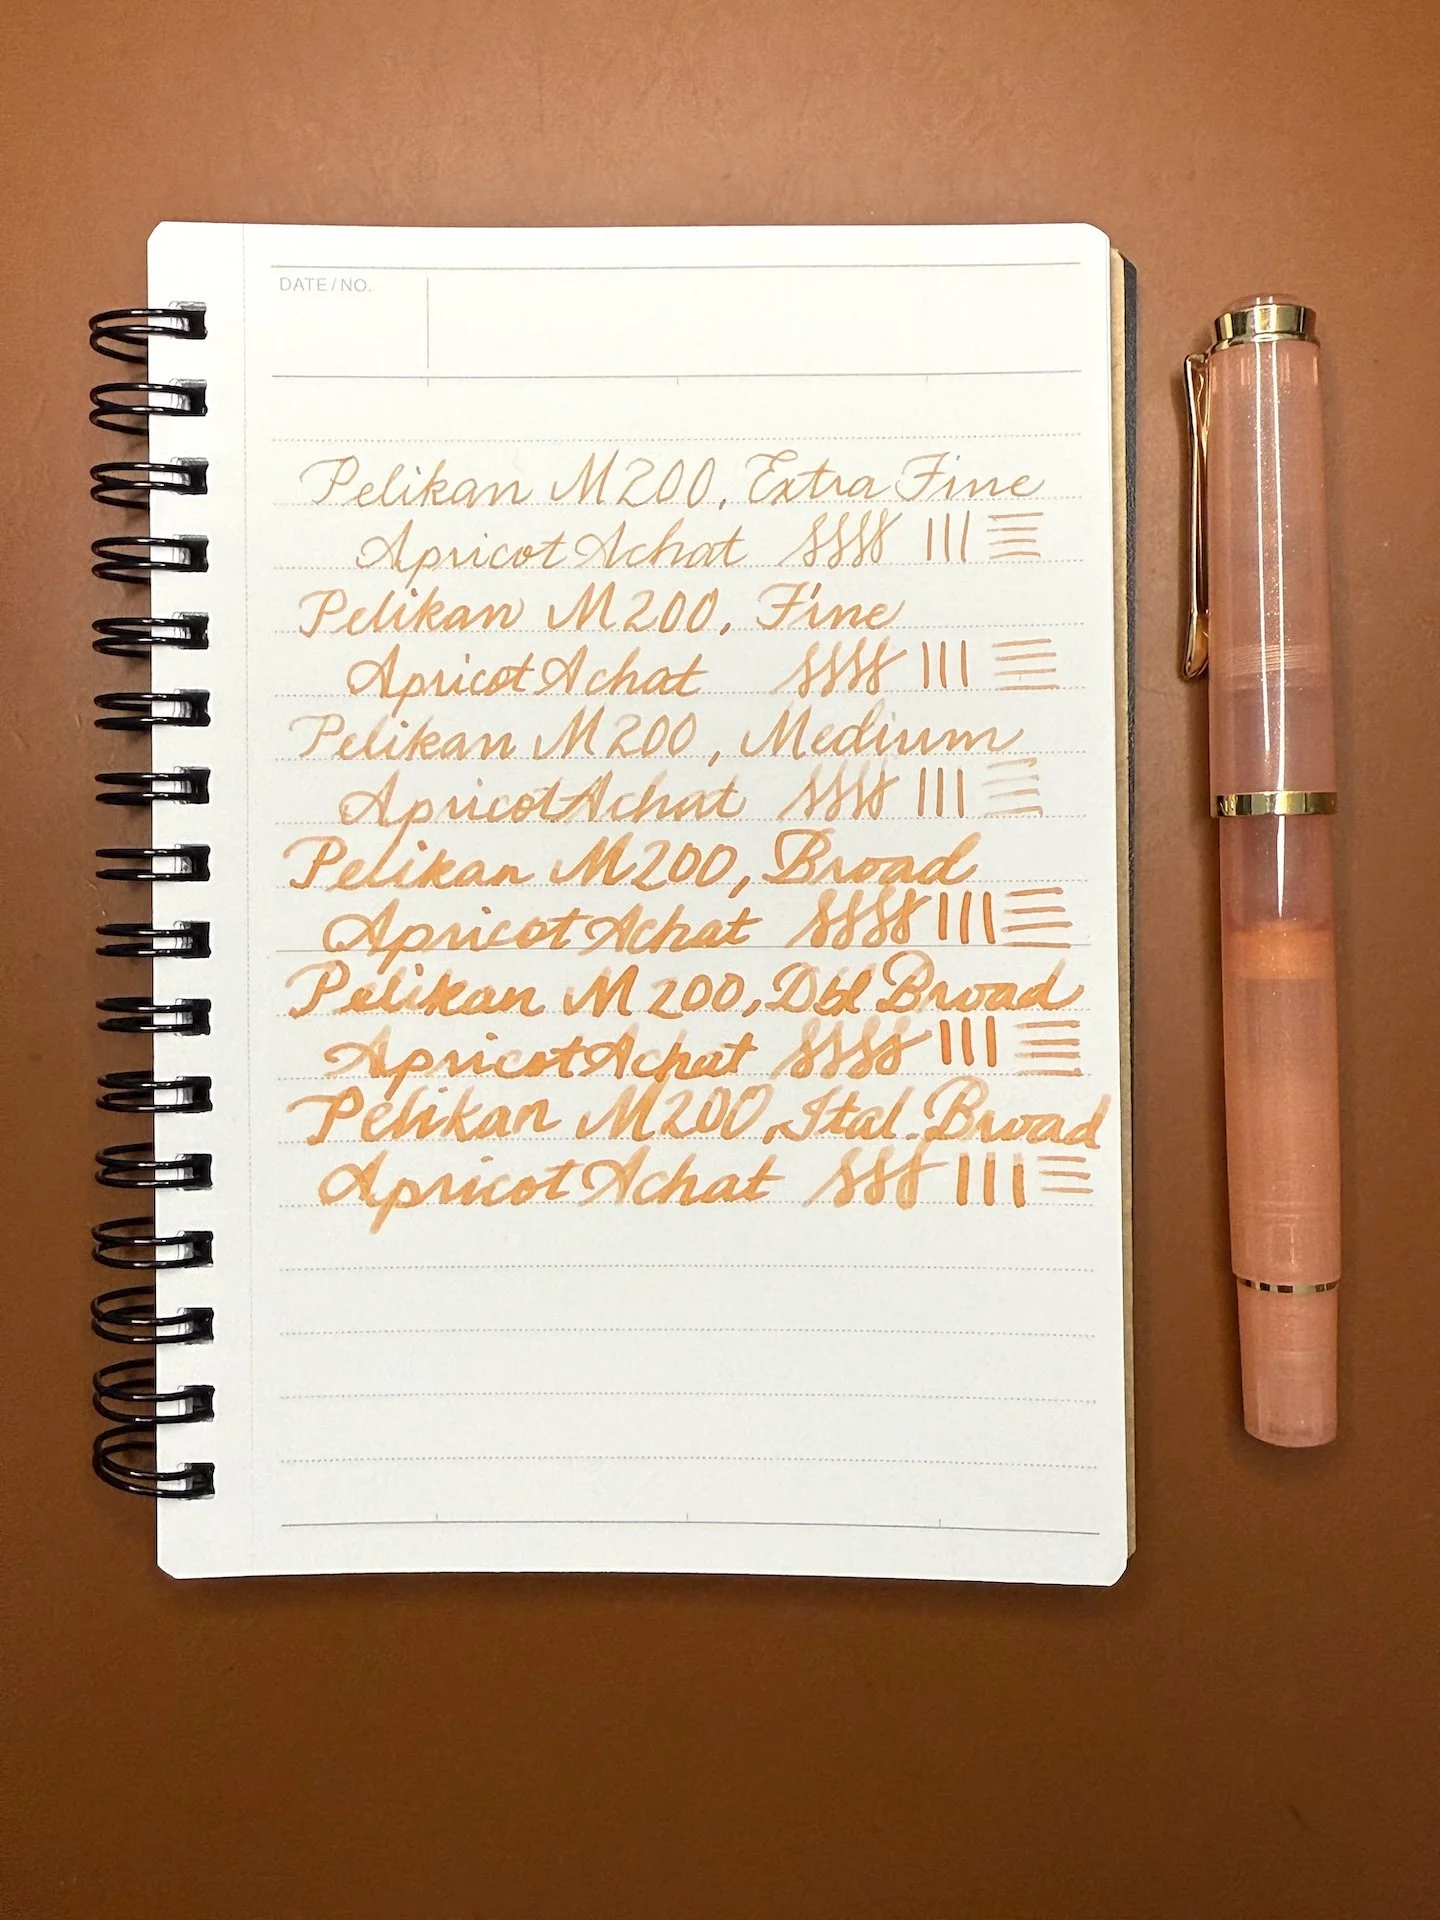 DATE/NO.
Pelikan M200, Extra Fine
Apricot Achat
Pelikan M200, Fine
Apricot Achat
Pelikan M200, Medium
Apricot Achat
Pelikan M200, Broad
Apricot Achat
Pelikan M200, Dbl Broad
Apricot Achat
Pelikan M200, Ital. Broad
Apricot Achat